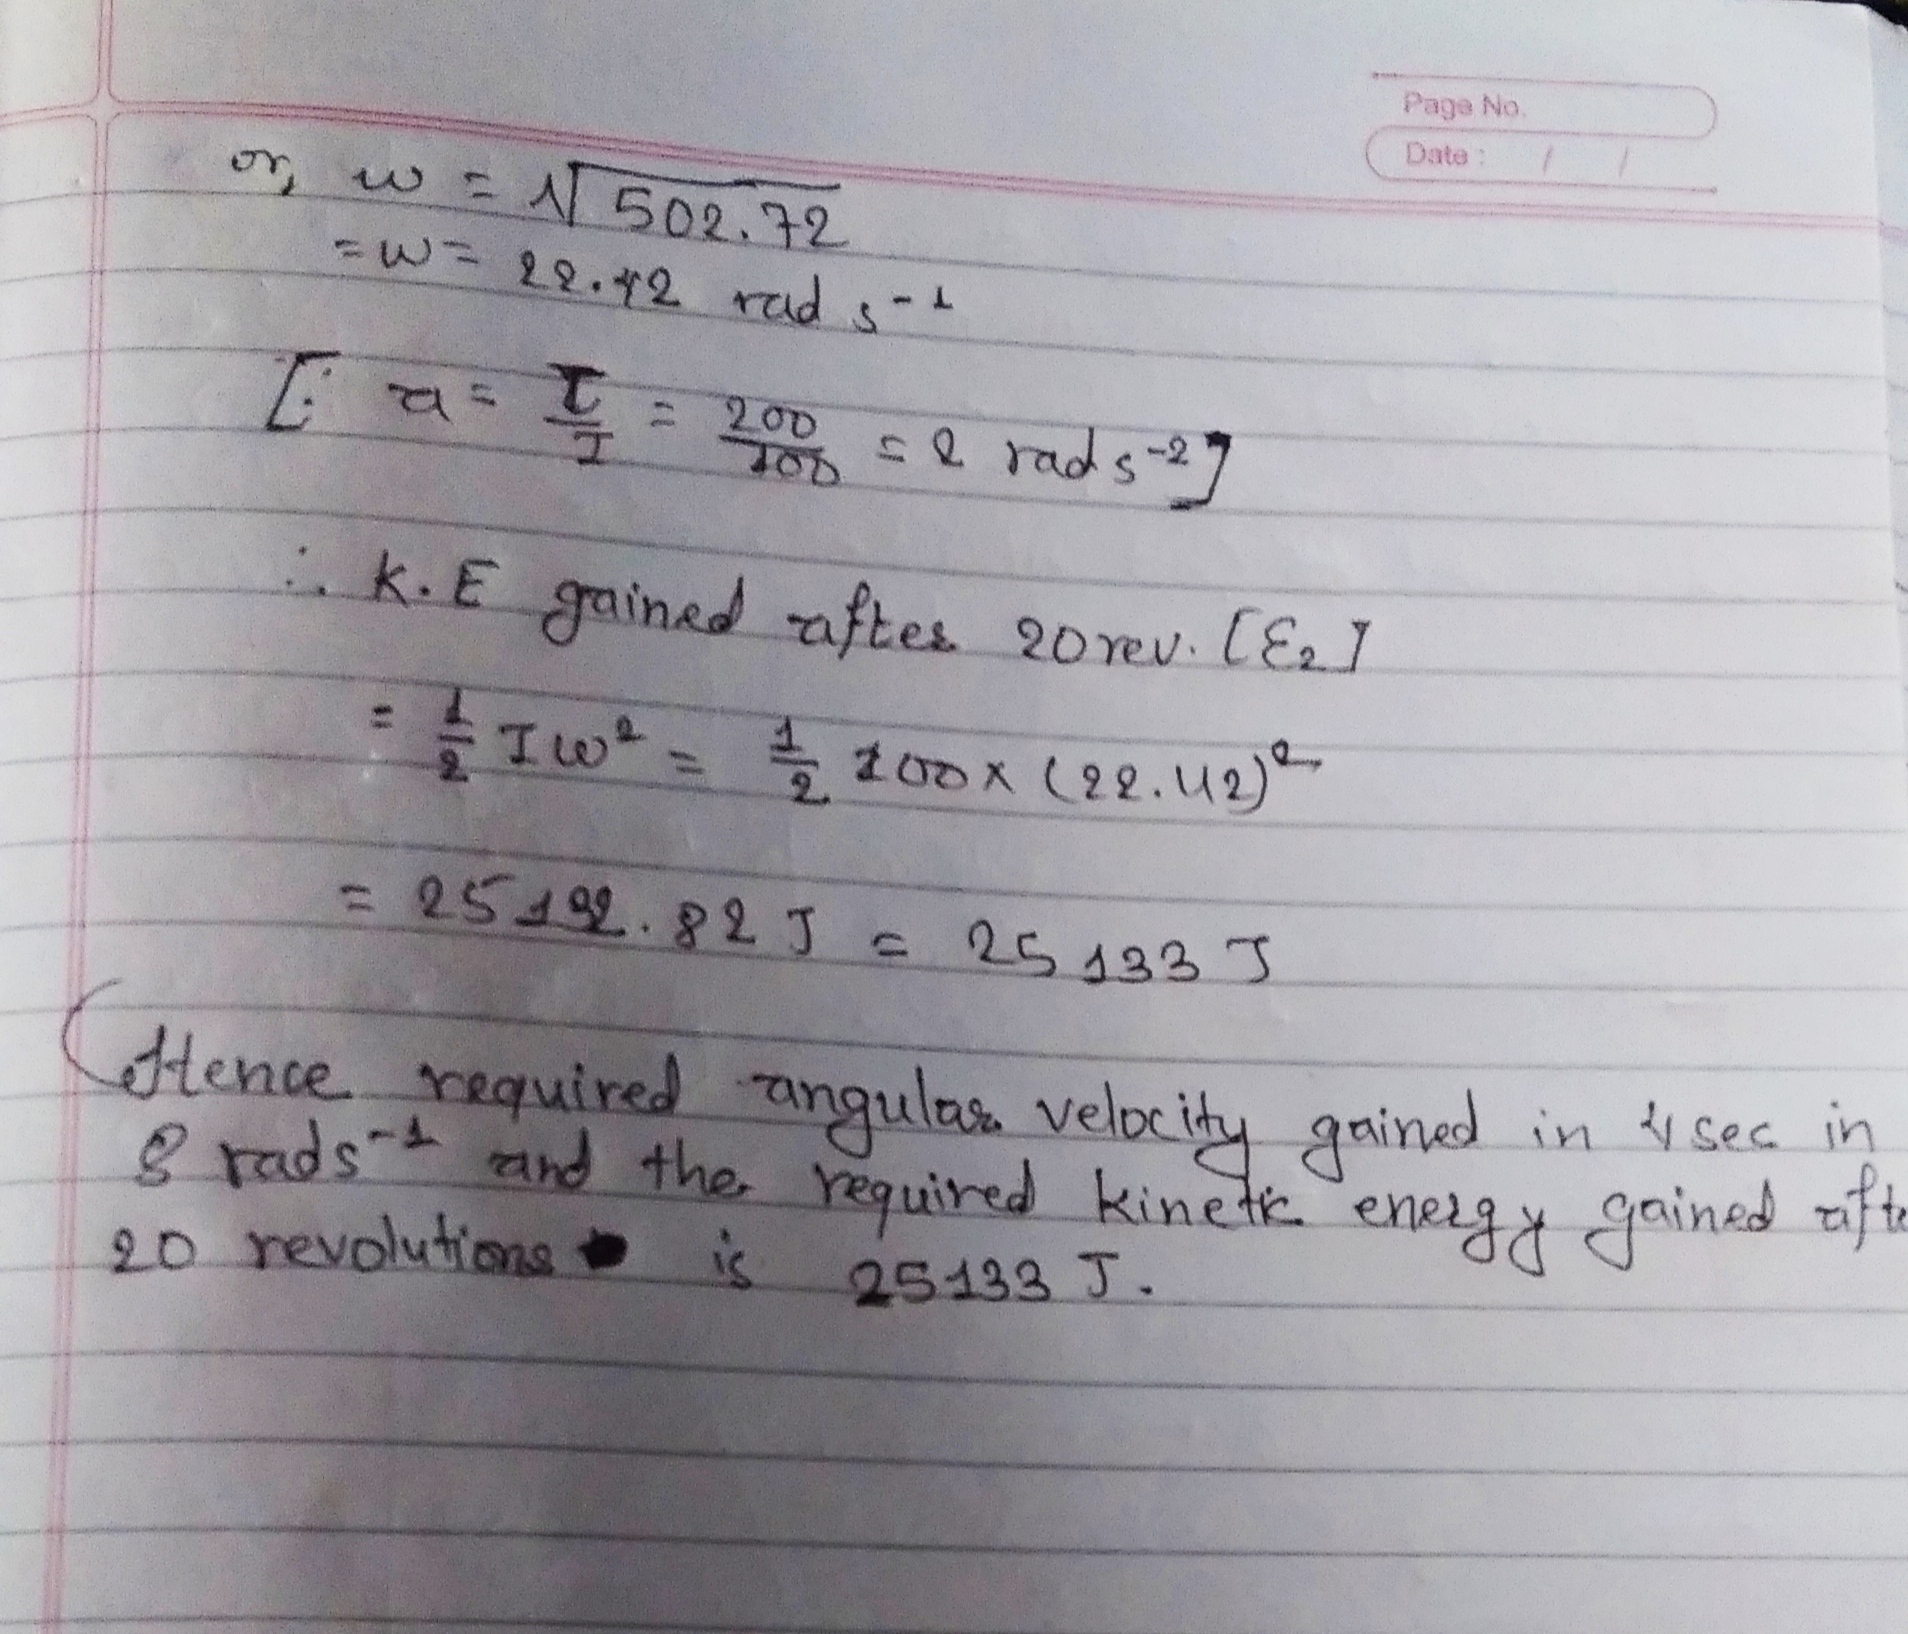 Page No.
Date : / /
or, w = √502.72
= w = 22.42 rad s-1
[∵ a = τ/I = 200/100 = 2 rad s-2]
∴ K.E gained after 20 rev. [E2]
= 1/2 Iw2 = 1/2 100 x (22.42)2
= 25132.82 J = 25133 J
Hence required angular velocity gained in 4 sec in
8 rads-1 and the required kinetic energy gained afte
20 revolutions is 25133 J.